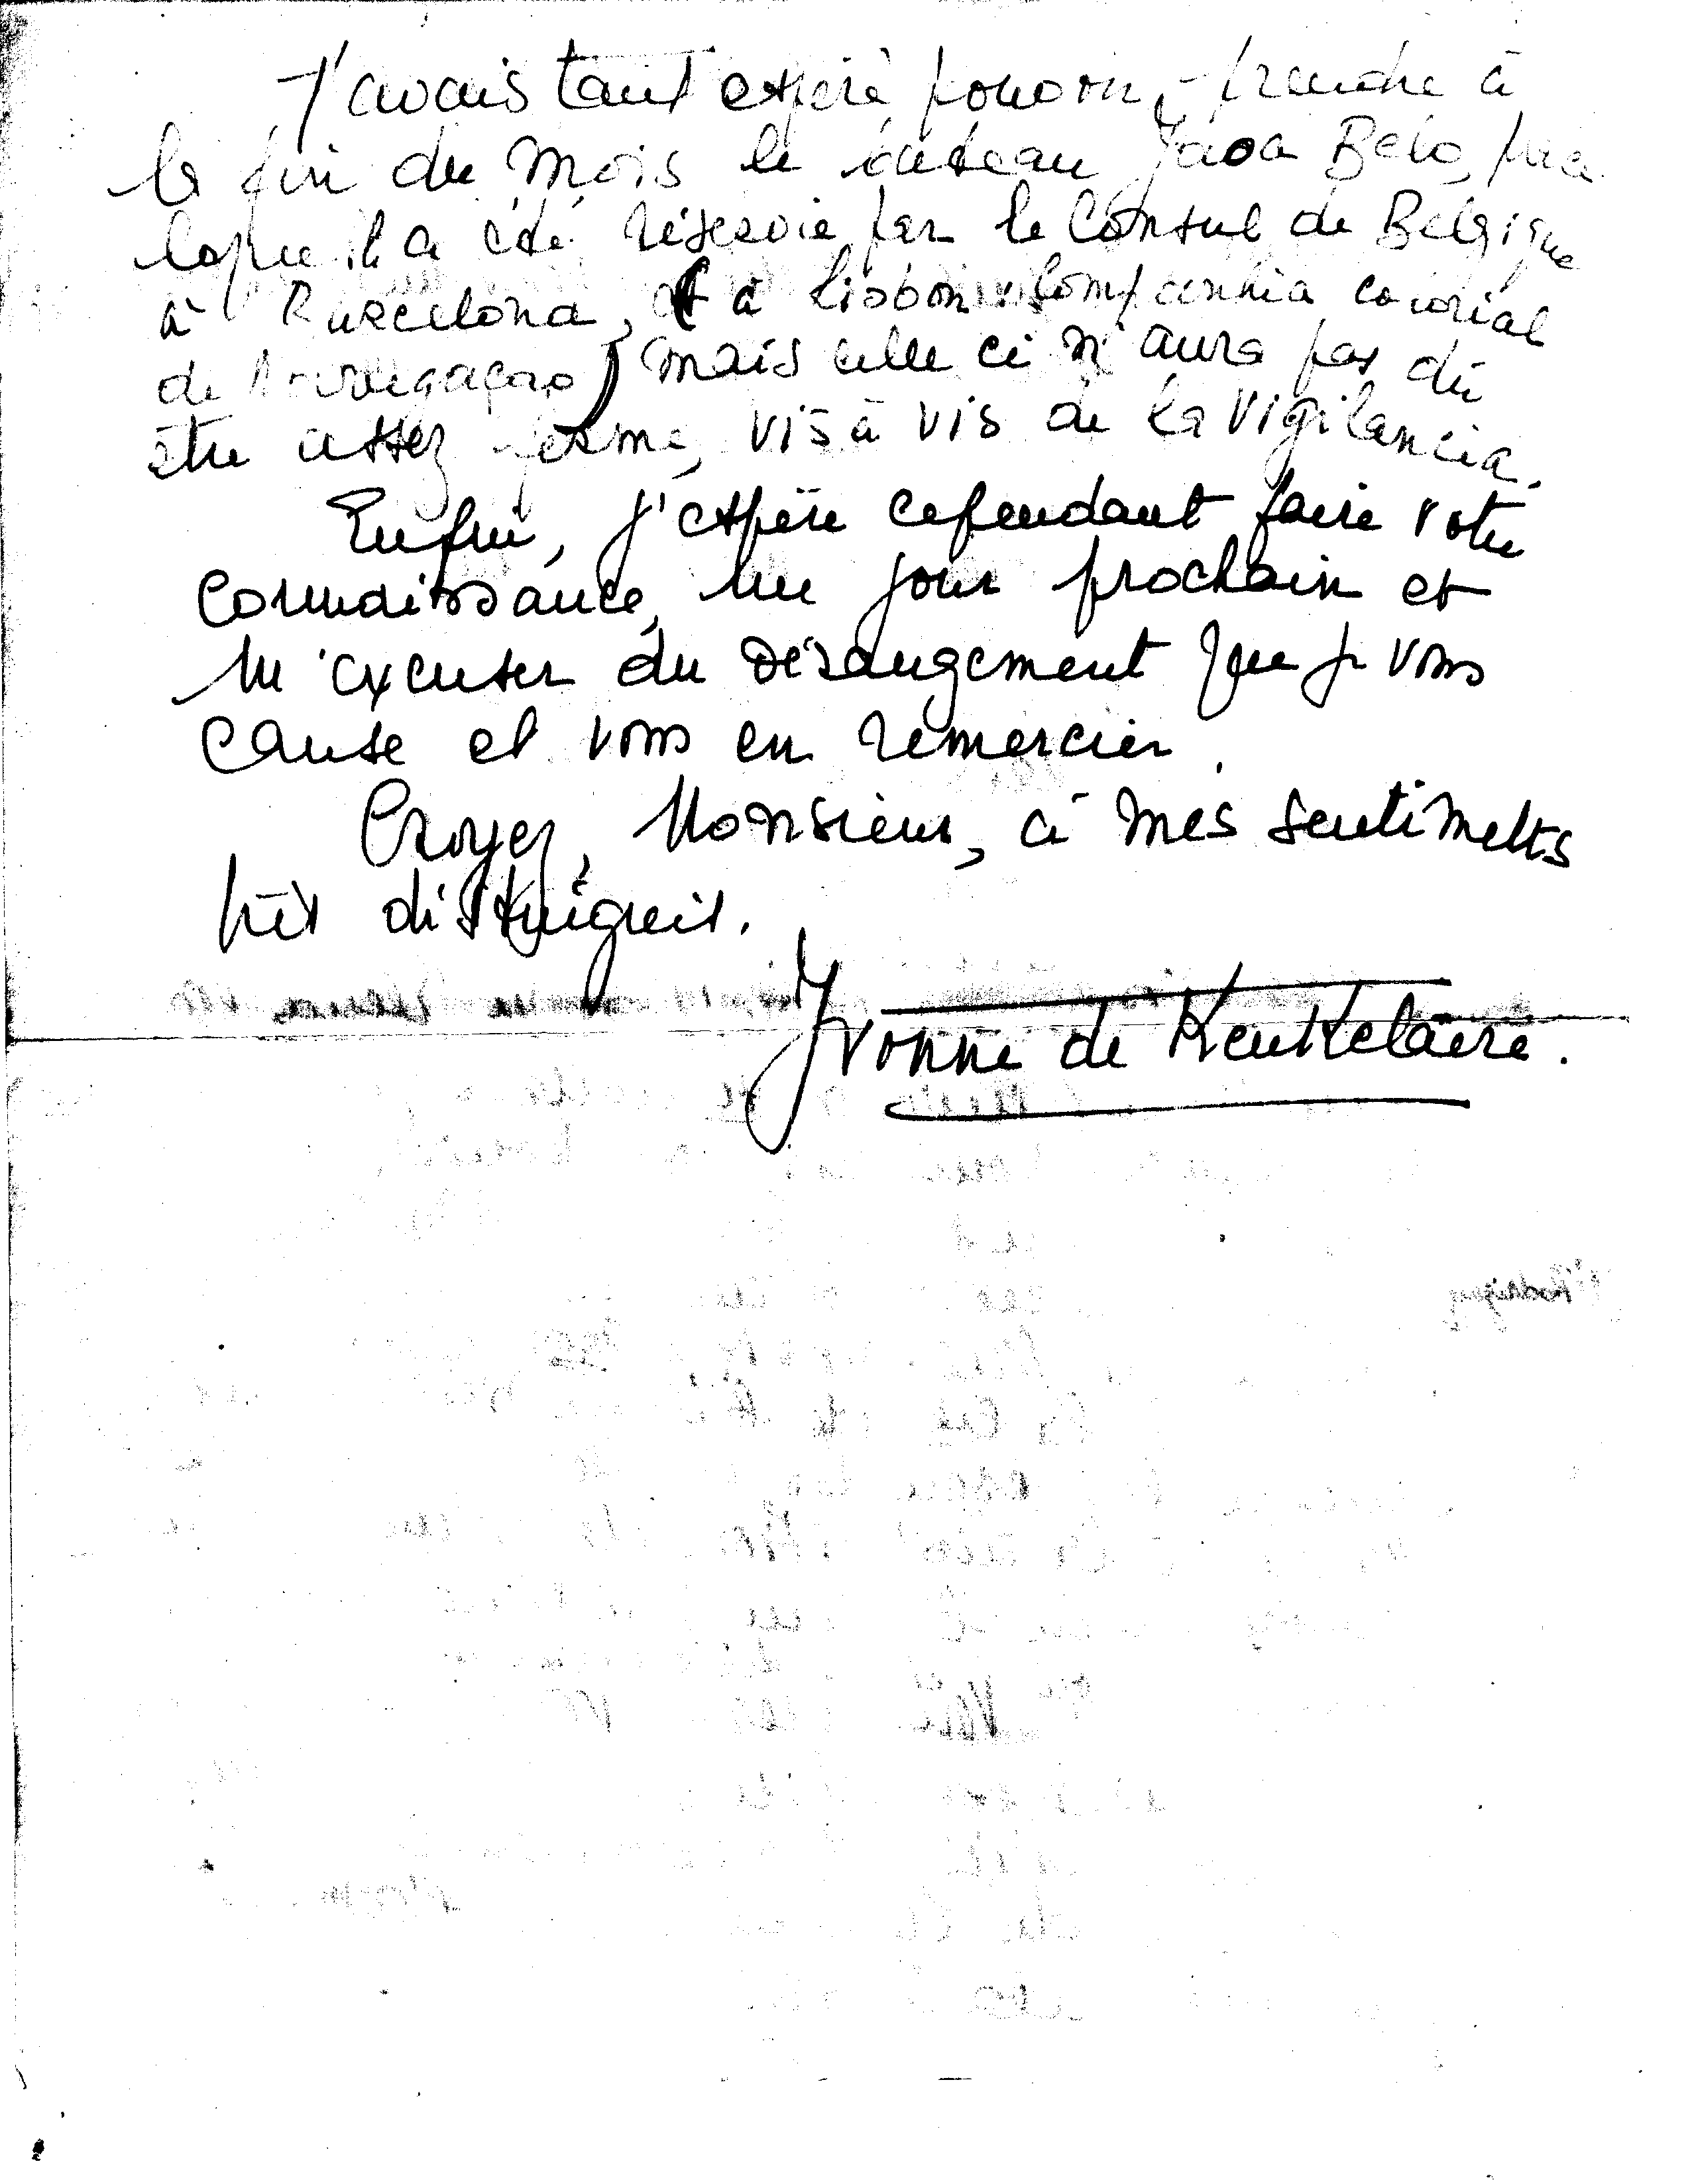 J'avais tant espéré pouvoir, prendre à
la fin du mois le bateau Jaoa Belo, 
il a été réservé par le Consul de Belgique
à Barcelona, et à Lisbonne Companhia
de mais celle ci n'aura pas dû
être assez ferme, vis à vis de la Vigilancia.
Enfin, j'espère cependant faire votre
connaissance, un jour prochain et
m'excuser du dérangement que je vous
cause et vous en remercier.
Croyez, Monsieur, à mes sentiments
très distingués.
Yvonne de Keukelaere.
Rodriguez